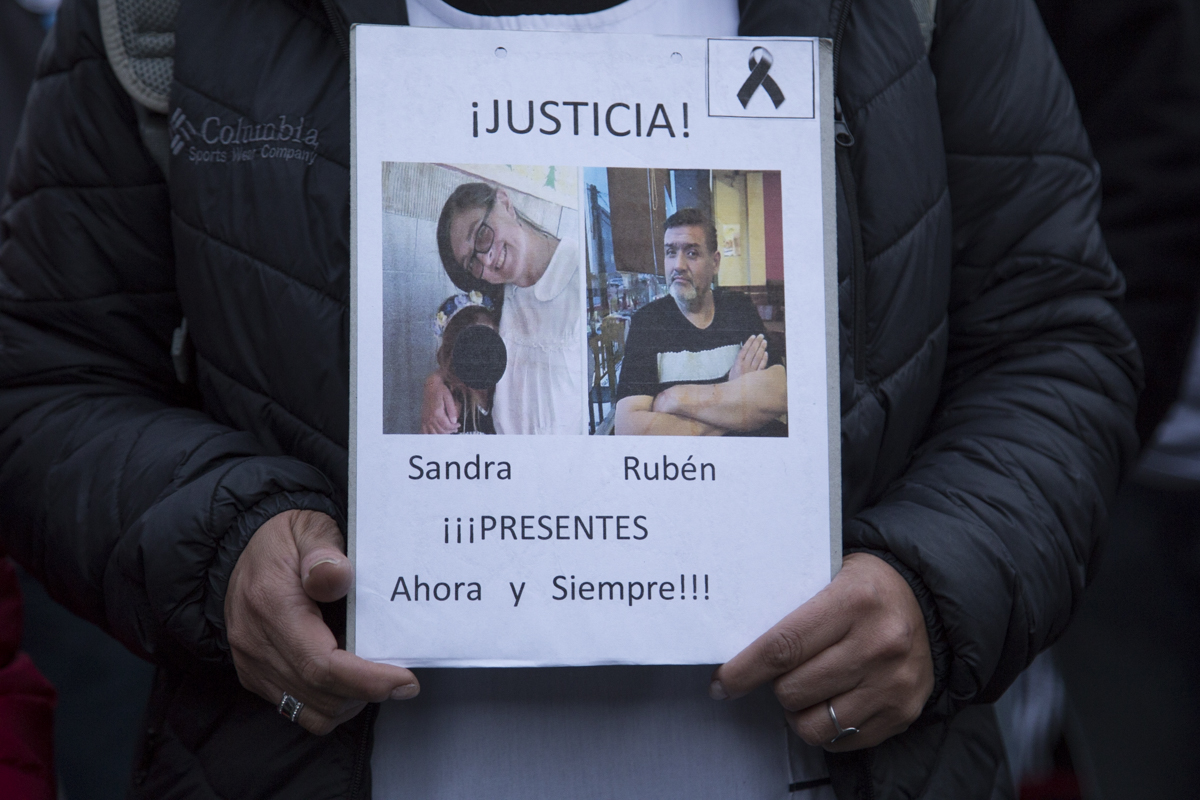 ¡JUSTICIA!
Columbia
Sports Wear Company
Sandra Rubén
¡¡¡PRESENTES
Ahora y Siempre!!!